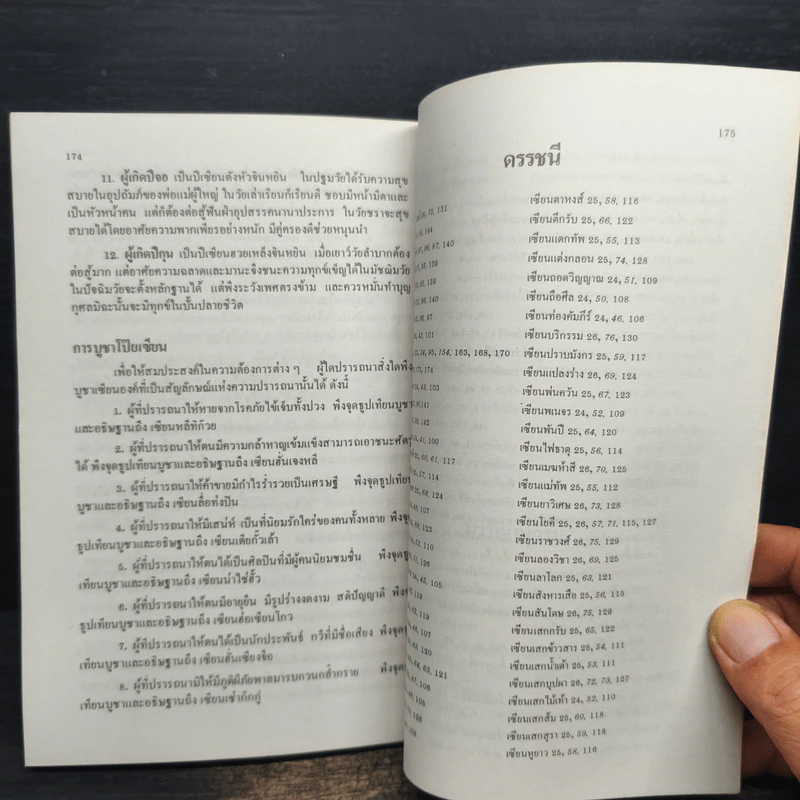 174
11. ผู้เกิดปีจอ เป็นปีเซียนดังหัวจินหยิน ในปฐมวัยได้รับความสุข
สบายในอุปถัมภ์ของพ่อแม่ผู้ใหญ่ ในวัยเล่าเรียนก็เรียนดี ชอบมีหน้ามีตาและ
เป็นหัวหน้าคน แต่ก็ต้องต่อสู้ฟันฝ่าอุปสรรคนานาประการ ในวัยชราจะสุข
สบายได้โดยอาศัยความพากเพียรอย่างหนัก มีคู่ครองดีช่วยหนุนนำ
12. ผู้เกิดปีกุน เป็นปีเซียนฮวยเหล็งจินหยิน เมื่อเยาว์วัยลำบากต้อง
ต่อสู้มาก แต่อาศัยความฉลาดและมานะจึงชนะความทุกข์เข็ญได้ในมัชฌิมวัย
ในปัจฉิมวัยจะตั้งหลักฐานได้ แต่พึงระวังเพศตรงข้าม และควรหมั่นทำบุญ
กุศลมิฉะนั้นจะมีทุกข์ในบั้นปลายชีวิต
การบูชาโป๊ยเซียน
เพื่อให้สมประสงค์ในความต้องการต่าง ๆ ผู้ใดปรารถนาสิ่งใดพึง
บูชาเซียนองค์ที่เป็นสัญลักษณ์แห่งความปรารถนานั้นได้ ดังนี้
1. ผู้ที่ปรารถนาให้หายจากโรคภัยไข้เจ็บทั้งปวง พึงจุดธูปเทียนบูชา
และอธิษฐานถึง เซียนหลีทิก๊วย
2. ผู้ที่ปรารถนาให้ตนมีความกล้าหาญเข้มแข็งสามารถเอาชนะศัตรู
ได้ พึงจุดธูปเทียนบูชาและอธิษฐานถึง เซียนฮั่นเจงหลี
3. ผู้ที่ปรารถนาให้ค้าขายมีกำไรร่ำรวยเป็นเศรษฐี พึงจุดธูปเทียน
บูชาและอธิษฐานถึง เซียนลื่อท่งปิน
4. ผู้ที่ปรารถนาให้มีเสน่ห์ เป็นที่นิยมรักใคร่ของคนทั้งหลาย พึงจุด
ธูปเทียนบูชาและอธิษฐานถึง เซียนเตียก๊วเล้า
5. ผู้ที่ปรารถนาให้ตนได้เป็นศิลปินที่มีผู้คนนิยมชมชื่น พึงจุดธูป
เทียนบูชาและอธิษฐานถึง เซียนน่าไช่ฮั้ว
6. ผู้ที่ปรารถนาให้ตนมีอายุยืน มีรูปร่างงดงาม สติปัญญาดี พึงจุด
ธูปเทียนบูชาและอธิษฐานถึง เซียนฮ่อเซียนโกว
7. ผู้ที่ปรารถนาให้ตนได้เป็นนักประพันธ์ กวีที่มีชื่อเสียง พึงจุดธูป
เทียนบูชาและอธิษฐานถึง เซียนฮั่นเซียงจือ
8. ผู้ที่ปรารถนามิให้มีภูตผีภัยพาลมารบกวนกล้ำกราย พึงจุดธูป
เทียนบูชาและอธิษฐานถึง เซียนเช่าก๊กกู๋
175
ดรรชนี
เซียนตาหงส์ 25, 58, 116
เซียนตีกรับ 25, 66, 122
เซียนแตกทัพ 25, 55, 113
เซียนแต่งกลอน 25, 74, 128
เซียนถอดวิญญาณ 24, 51, 109
เซียนถือศีล 24, 50, 108
เซียนท่องคัมภีร์ 24, 46, 106
เซียนบริกรรม 26, 76, 130
เซียนปราบมังกร 25, 59, 117
เซียนแปลงร่าง 26, 69, 124
เซียนพ่นควัน 25, 67, 123
เซียนพเนจร 24, 52, 109
เซียนพันปี 25, 64, 120
เซียนไฟธาตุ 25, 56, 114
เซียนเมฆห้าสี 26, 70, 125
เซียนแม่ทัพ 25, 55, 112
เซียนยาวิเศษ 26, 73, 128
เซียนโยคี 25, 26, 57, 71, 115, 127
เซียนราชวงศ์ 26, 75, 129
เซียนลองวิชา 26, 69, 125
เซียนลาโลก 25, 63, 121
เซียนสังหารเสือ 25, 56, 115
เซียนสันโดษ 26, 75, 129
เซียนเสกกรับ 25, 65, 122
เซียนเสกข้าวสาร 25, 54, 111
เซียนเสกน้ำเต้า 25, 53, 111
เซียนเสกบุปผา 26, 72, 73, 127
เซียนเสกไม้เท้า 24, 52, 110
เซียนเสกส้ม 25, 60, 118
เซียนเสกสุรา 25, 59, 118
เซียนหูยาว 25, 58, 116